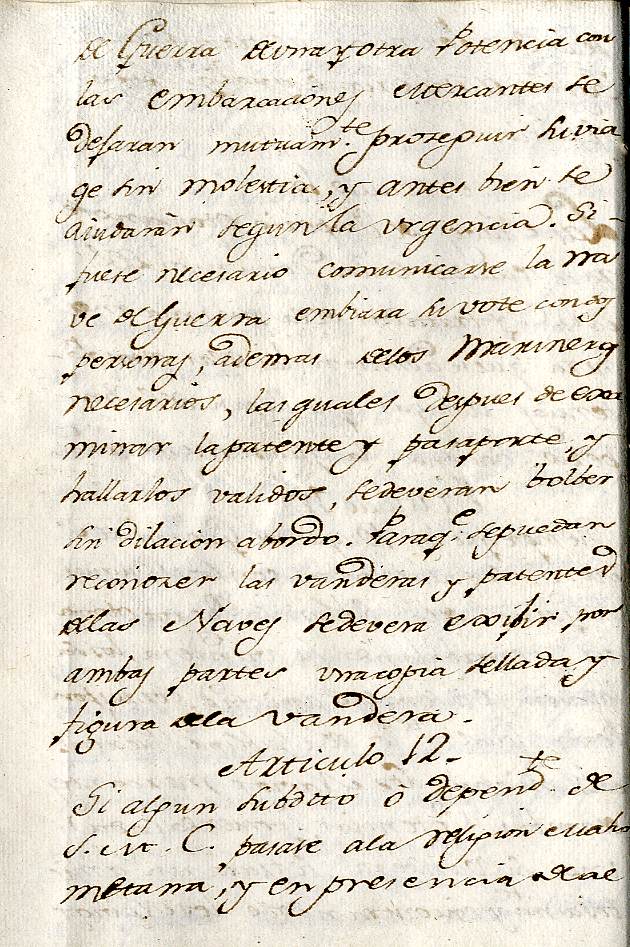 de Guerra de una y otra Potencia con
las embarcaciones Mercantes se
dejaran mutuam.te proseguir su via
ge sin molestia, y antes bien se
aiudaràn segun la urgencia. Si
fuese necesario comunicarse la na
ve de Guerra embiara su vote con dos
personas, ademas de los Marineros
necesarios, las quales despues de exa
minar la patente y pasaporte, y
hallarlos validos, se deveran bolber
sin dilacion a bordo. Paraq.e se puedan
reconozer las vanderas y patentes
de las Naves se devera exibir por
ambas partes una copia sellada y
figura de la vandera.
Articulo 12.
Si algun subdito ò depend.te de
S. M. C. pasase a la religion Maho
metana, y en presencia de el